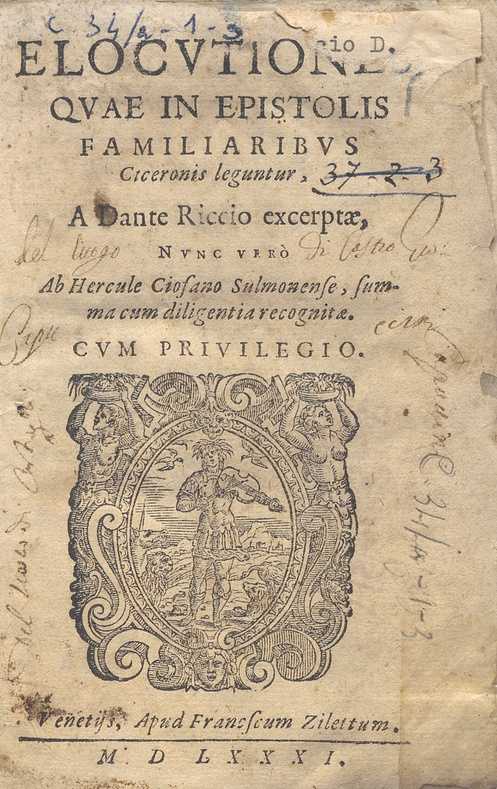 C. 34/a-1-3
io D.
ELOCVTIONES
QVAE IN EPISTOLIS
FAMILIARIBVS
Ciceronis leguntur,
37-2-3
A Dante Riccio excerptæ,
del luogo
NVNC VERÒ
di
Ab Hercule Ciofano Sulmonense, sum-
ma cum diligentia recognitæ.
CVM PRIVILEGIO.
C. 34/a-1-3
Venetijs, Apud Francscum Zilettum.
M D LXXXI.